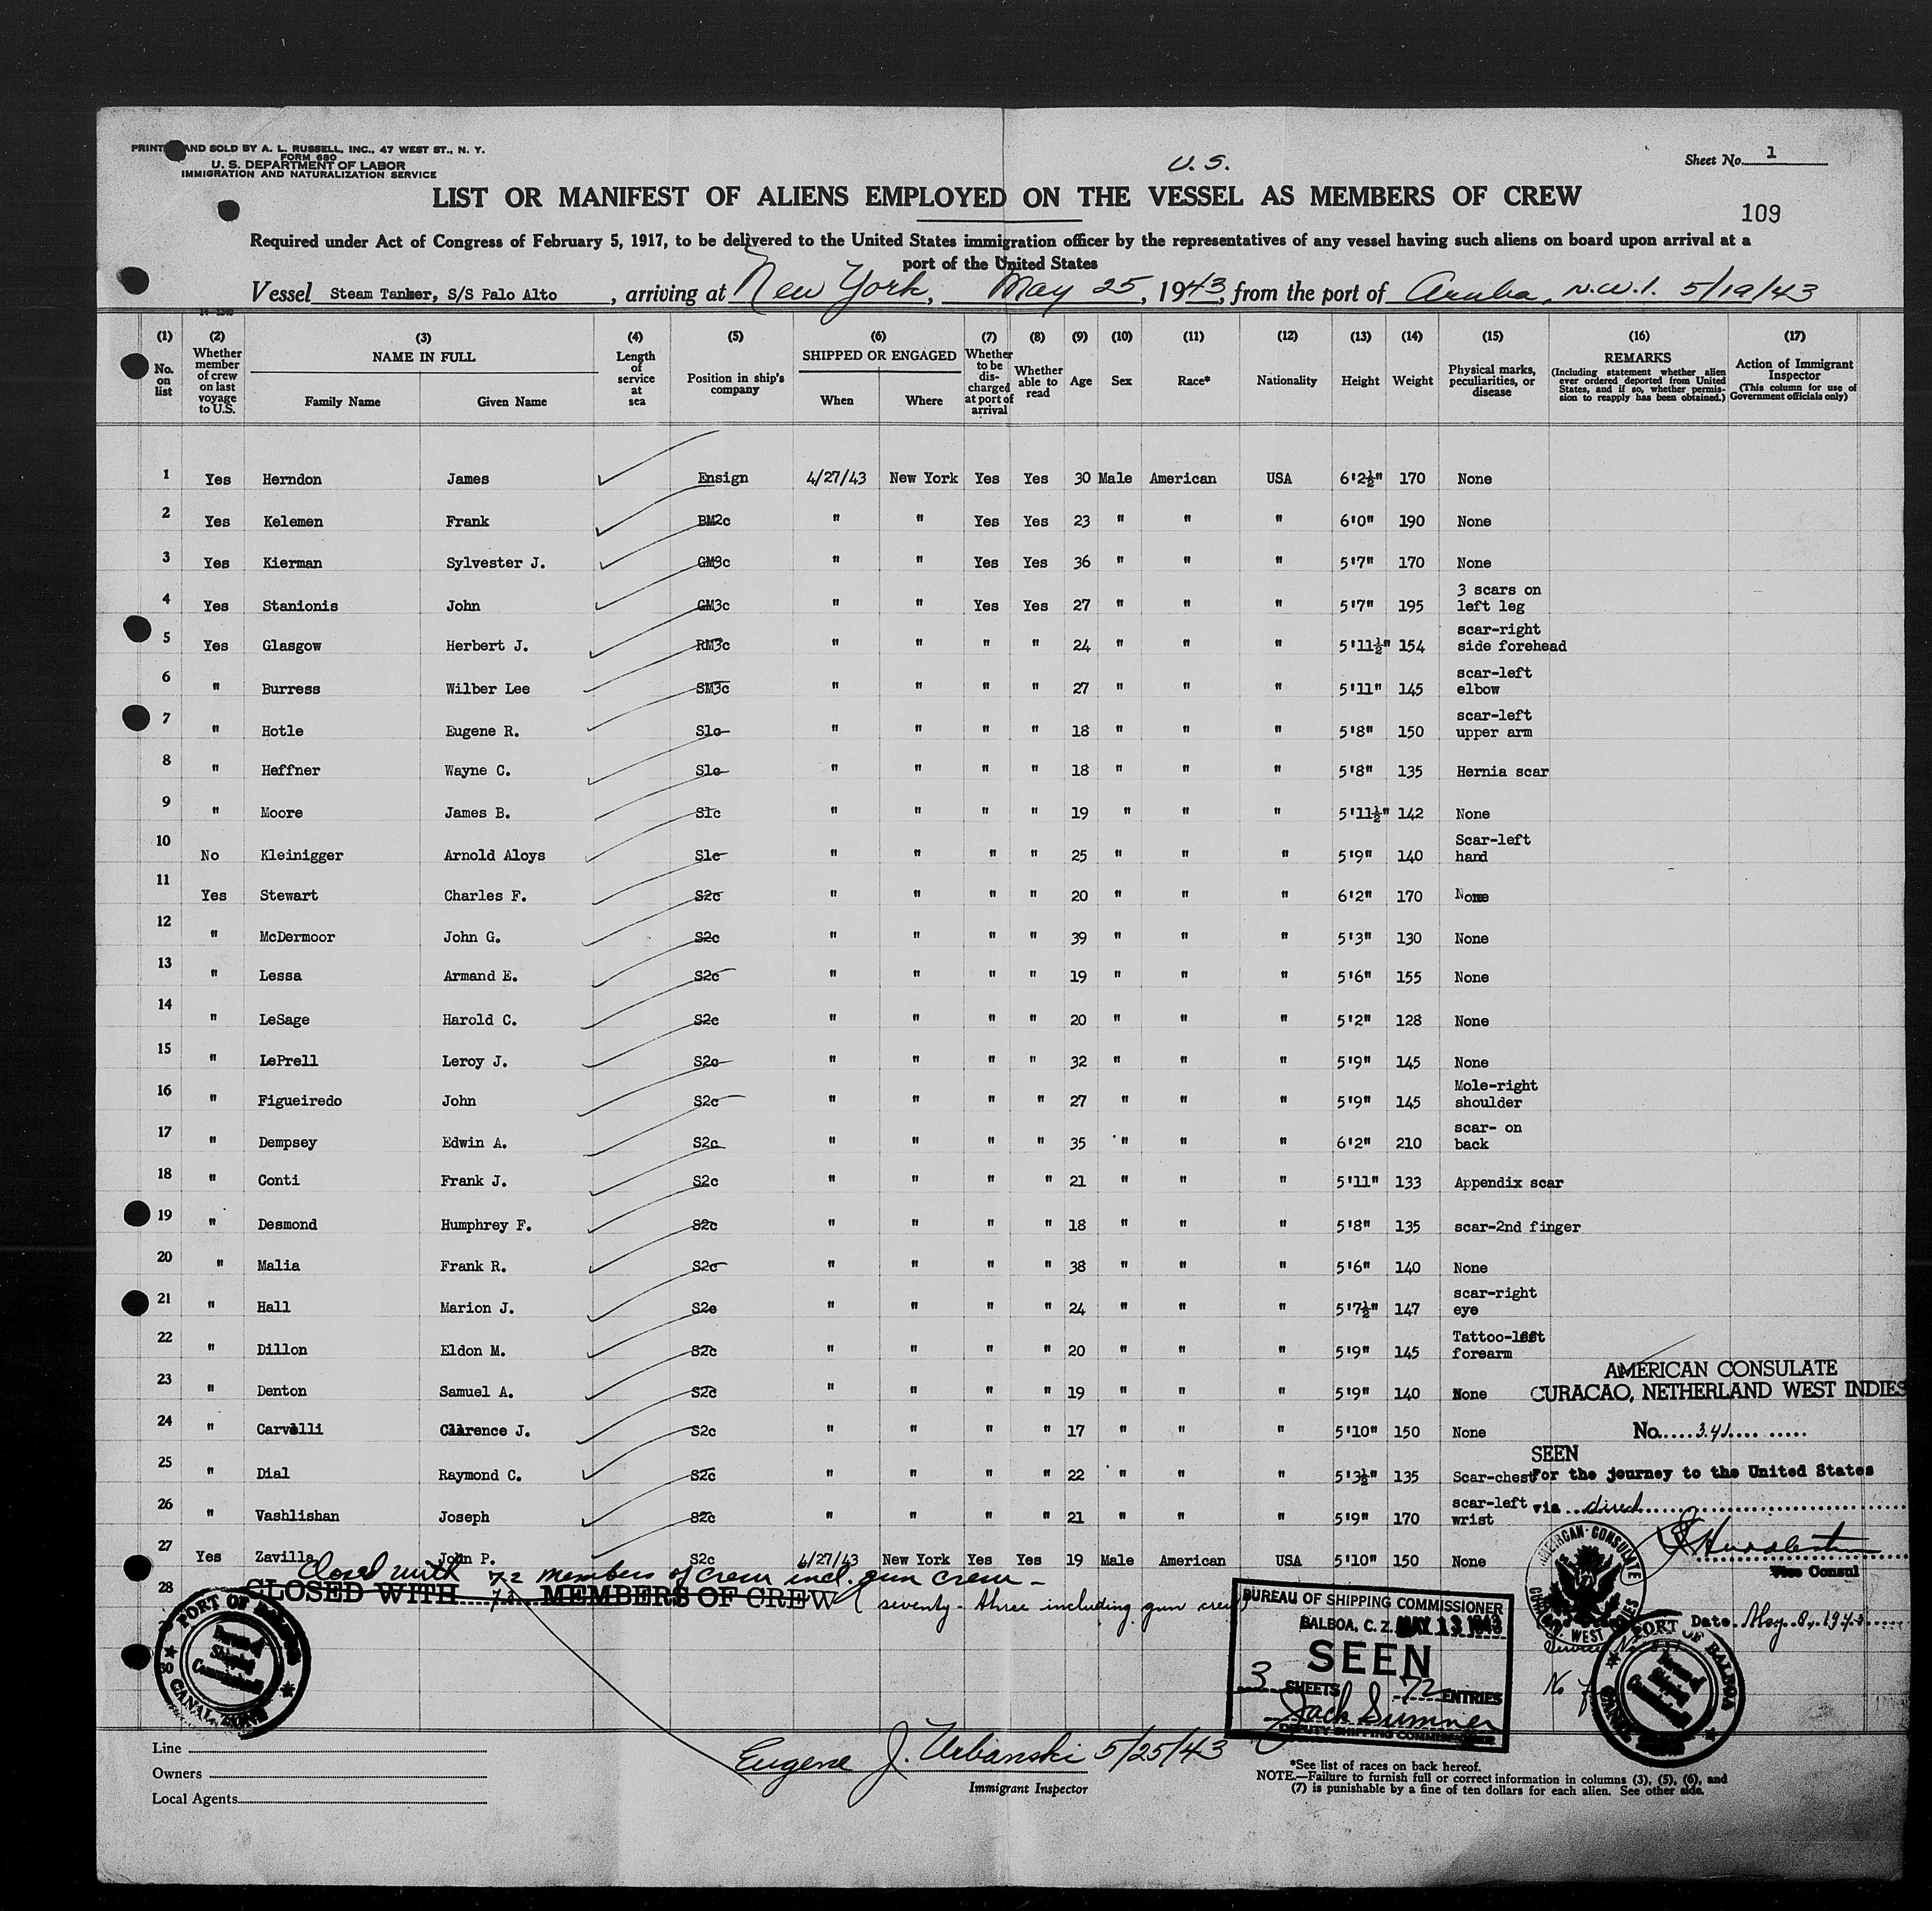 PRINTED AND SOLD BY A. L. RUSSELL, INC., 47 WEST ST., N. Y.
FORM 680
U. S. DEPARTMENT OF LABOR
IMMIGRATION AND NATURALIZATION SERVICE
U.S.
Sheet No. 1
LIST OR MANIFEST OF ALIENS EMPLOYED ON THE VESSEL AS MEMBERS OF CREW
109
Required under Act of Congress of February 5, 1917, to be delivered to the United States immigration officer by the representatives of any vessel having such aliens on board upon arrival at a
port of the United States
Vessel Steam Tanker, S/S Palo Alto, arriving at New York, May 25, 1943, from the port of Aruba, N.W.I. 5/19/43
(1) (2) (3) (4) (5) (6) (7) (8) (9) (10) (11) (12) (13) (14) (15) (16) (17)
No. on list
Whether member of crew on last voyage to U.S.
NAME IN FULL
Family Name Given Name
Length of service at sea
Position in ship's company
SHIPPED OR ENGAGED
When Where
Whether to be discharged at port of arrival
Whether able to read
Age
Sex
Race*
Nationality
Height
Weight
Physical marks, peculiarities, or disease
REMARKS
(Including statement whether alien ever ordered deported from United States, and if so, whether permission to reapply has been obtained.)
Action of Immigrant Inspector
(This column for use of Government officials only)
1 Yes Herndon James Ensign 4/27/43 New York Yes Yes 30 Male American USA 6'2½" 170 None
2 Yes Kelemen Frank BM2c " " Yes Yes 23 " " " 6'0" 190 None
3 Yes Kierman Sylvester J. GM3c " " Yes Yes 36 " " " 5'7" 170 None
4 Yes Stanionis John GM3c " " Yes Yes 27 " " " 5'7" 195 3 scars on left leg
5 Yes Glasgow Herbert J. RM3c " " " " 24 " " " 5'11½" 154 scar-right side forehead
6 " Burress Wilber Lee SM3c " " " " 27 " " " 5'11" 145 scar-left elbow
7 " Hotle Eugene R. S1c " " " " 18 " " " 5'8" 150 scar-left upper arm
8 " Heffner Wayne C. S1c " " " " 18 " " " 5'8" 135 Hernia scar
9 " Moore James B. S1c " " " " 19 " " " 5'11½" 142 None
10 No Kleinigger Arnold Aloys S1c " " " " 25 " " " 5'9" 140 Scar-left hand
11 Yes Stewart Charles F. S2c " " " " 20 " " " 6'2" 170 None
12 " McDermoor John G. S2c " " " " 39 " " " 5'3" 130 None
13 " Lessa Armand E. S2c " " " " 19 " " " 5'6" 155 None
14 " LeSage Harold C. S2c " " " " 20 " " " 5'2" 128 None
15 " LePrell Leroy J. S2c " " " " 32 " " " 5'9" 145 None
16 " Figueiredo John S2c " " " " 27 " " " 5'9" 145 Mole-right shoulder
17 " Dempsey Edwin A. S2c " " " " 35 " " " 6'2" 210 scar- on back
18 " Conti Frank J. S2c " " " " 21 " " " 5'11" 133 Appendix scar
19 " Desmond Humphrey F. S2c " " " " 18 " " " 5'8" 135 scar-2nd finger
20 " Malia Frank R. S2c " " " " 38 " " " 5'6" 140 None
21 " Hall Marion J. S2c " " " " 24 " " " 5'7½" 147 scar-right eye
22 " Dillon Eldon M. S2c " " " " 20 " " " 5'9" 145 Tattoo-left forearm
23 " Denton Samuel A. S2c " " " " 19 " " " 5'9" 140 None
24 " Carvelli Clarence J. S2c " " " " 17 " " " 5'10" 150 None
25 " Dial Raymond C. S2c " " " " 22 " " " 5'3½" 135 Scar-chest
26 " Vashlishan Joseph S2c " " " " 21 " " " 5'9" 170 scar-left wrist
27 Yes Zavilla John P. S2c 4/27/43 New York Yes Yes 19 Male American USA 5'10" 150 None
28
AMERICAN CONSULATE
CURACAO, NETHERLAND WEST INDIES
No. 341
SEEN
For the journey to the United States
via direct
Vice Consul
AMERICAN CONSULATE
Date
Closed with 72 members of crew incl. gun crew -
CLOSED WITH 73 MEMBERS OF CREW (seventy-three including gun crew)
30
CANAL ZONE
BUREAU OF SHIPPING COMMISSIONER
BALBOA, C. Z. MAY 13 1943
SEEN
3 SHEETS 72 ENTRIES
Jack Sumner
DEPUTY SHIPPING COMMISSIONER
PORT OF BALBOA
Line
Owners
Local Agents
Eugene J. Urbanski 5/25/43
Immigrant Inspector
*See list of races on back hereof.
NOTE.—Failure to furnish full or correct information in columns (3), (5), (6), and
(7) is punishable by a fine of ten dollars for each alien. See other side.